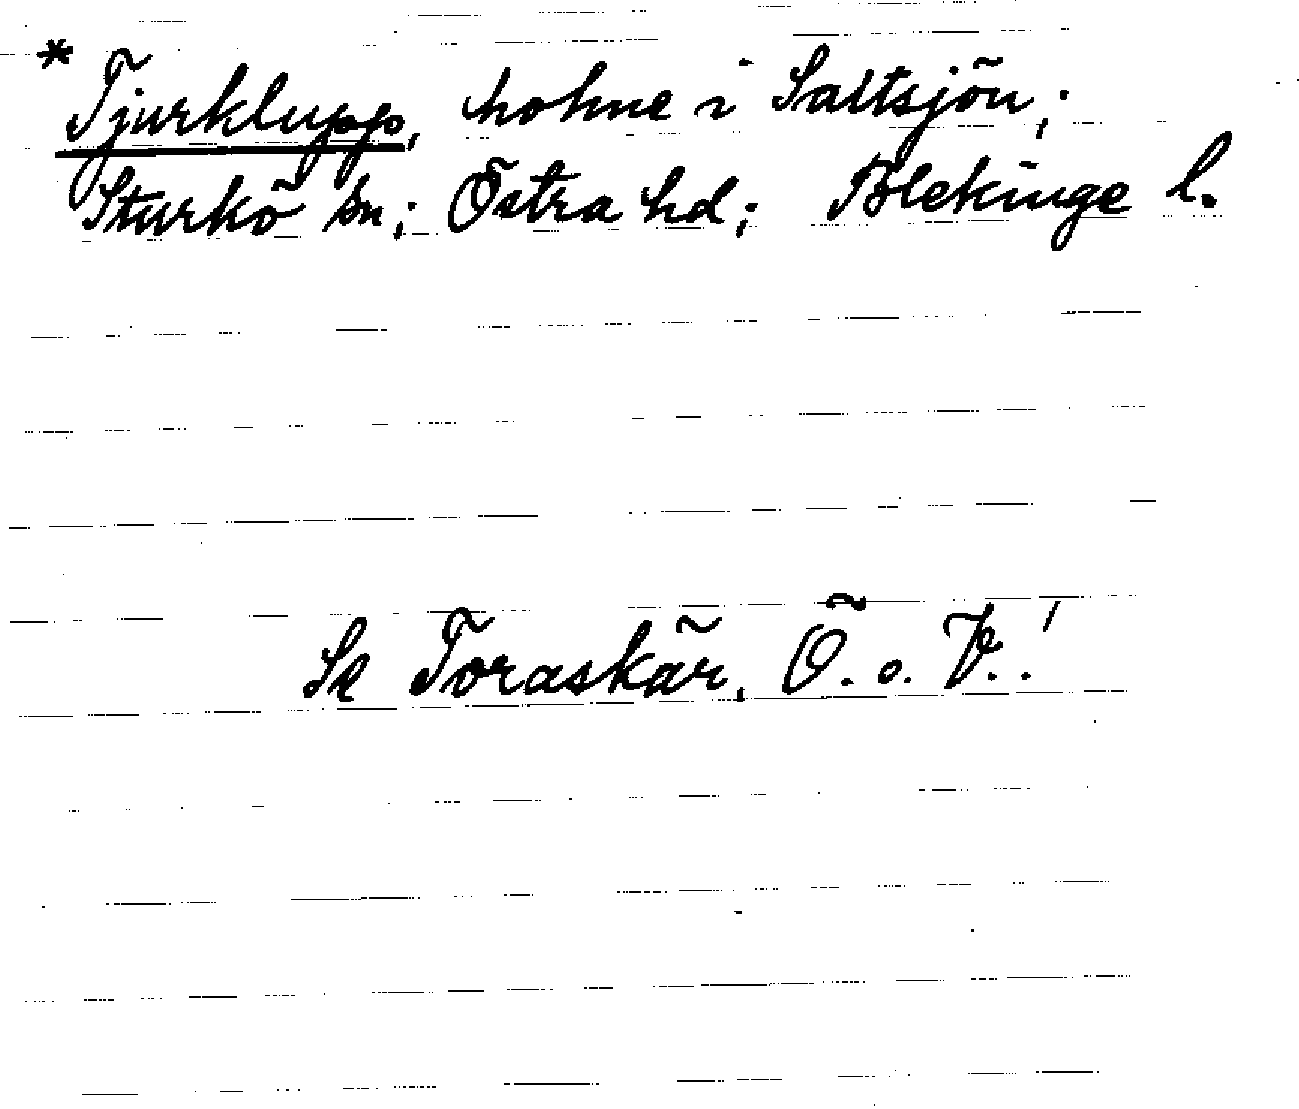 *Tjurklupp, holme i Saltsjön;
Sturkö sn; Östra hd; Blekinge l.
Se Toraskär, Ö. o. V.!